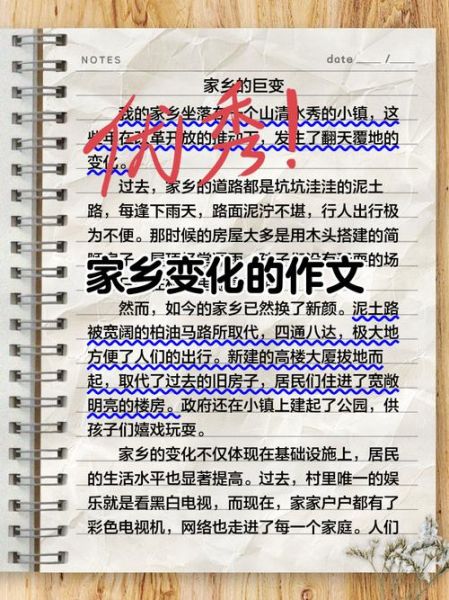 NOTES
date ___ /___
家乡的巨变
优秀!
我的家乡坐落在一个山清水秀的小镇,这
些年在改革开放的推动下,发生了翻天覆地的
变化。
过去,家乡的道路都是坑坑洼洼的泥土
路,每逢下雨天,路面泥泞不堪,行人出行极
为不便。那时候的房屋大多是用木头搭建的简
的场
家乡变化的作文
然而,如今的家乡已然换了新颜。泥土路
被宽阔的柏油马路所取代,四通八达,极大地
方便了人们的出行。新建的高楼大厦拔地而
起,取代了过去的旧房子,居民们住进了宽敞
明亮的楼房。政府还在小镇上建起了公园,供
孩子们嬉戏玩耍。
家乡的变化不仅体现在基础设施上,居民
的生活水平也显著提高。过去,村里唯一的娱
乐就是看黑白电视,而现在,家家户户都有了
彩色电视机,网络也走进了每一个家庭。人们